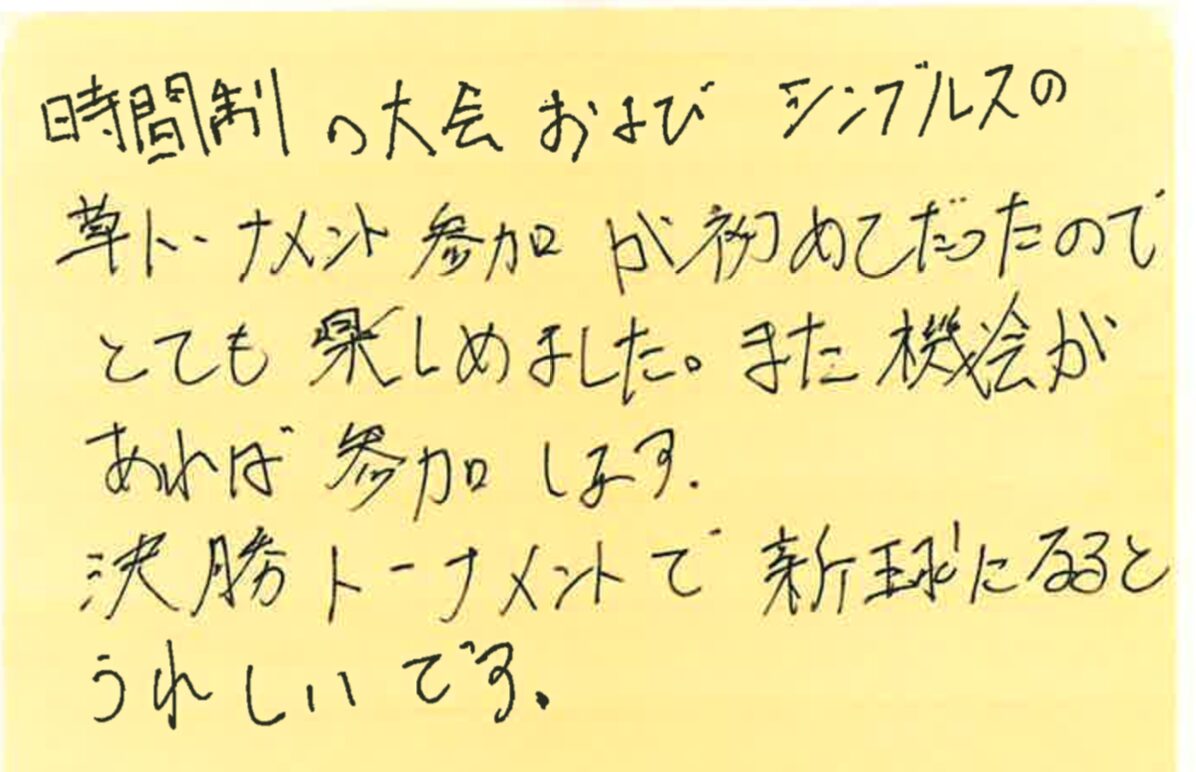 時間制の大会およびシングルスの
草トーナメント参加が初めてだったので
とても楽しめました。また機会が
あれば参加します.
決勝トーナメントで新球になると
うれしいです.